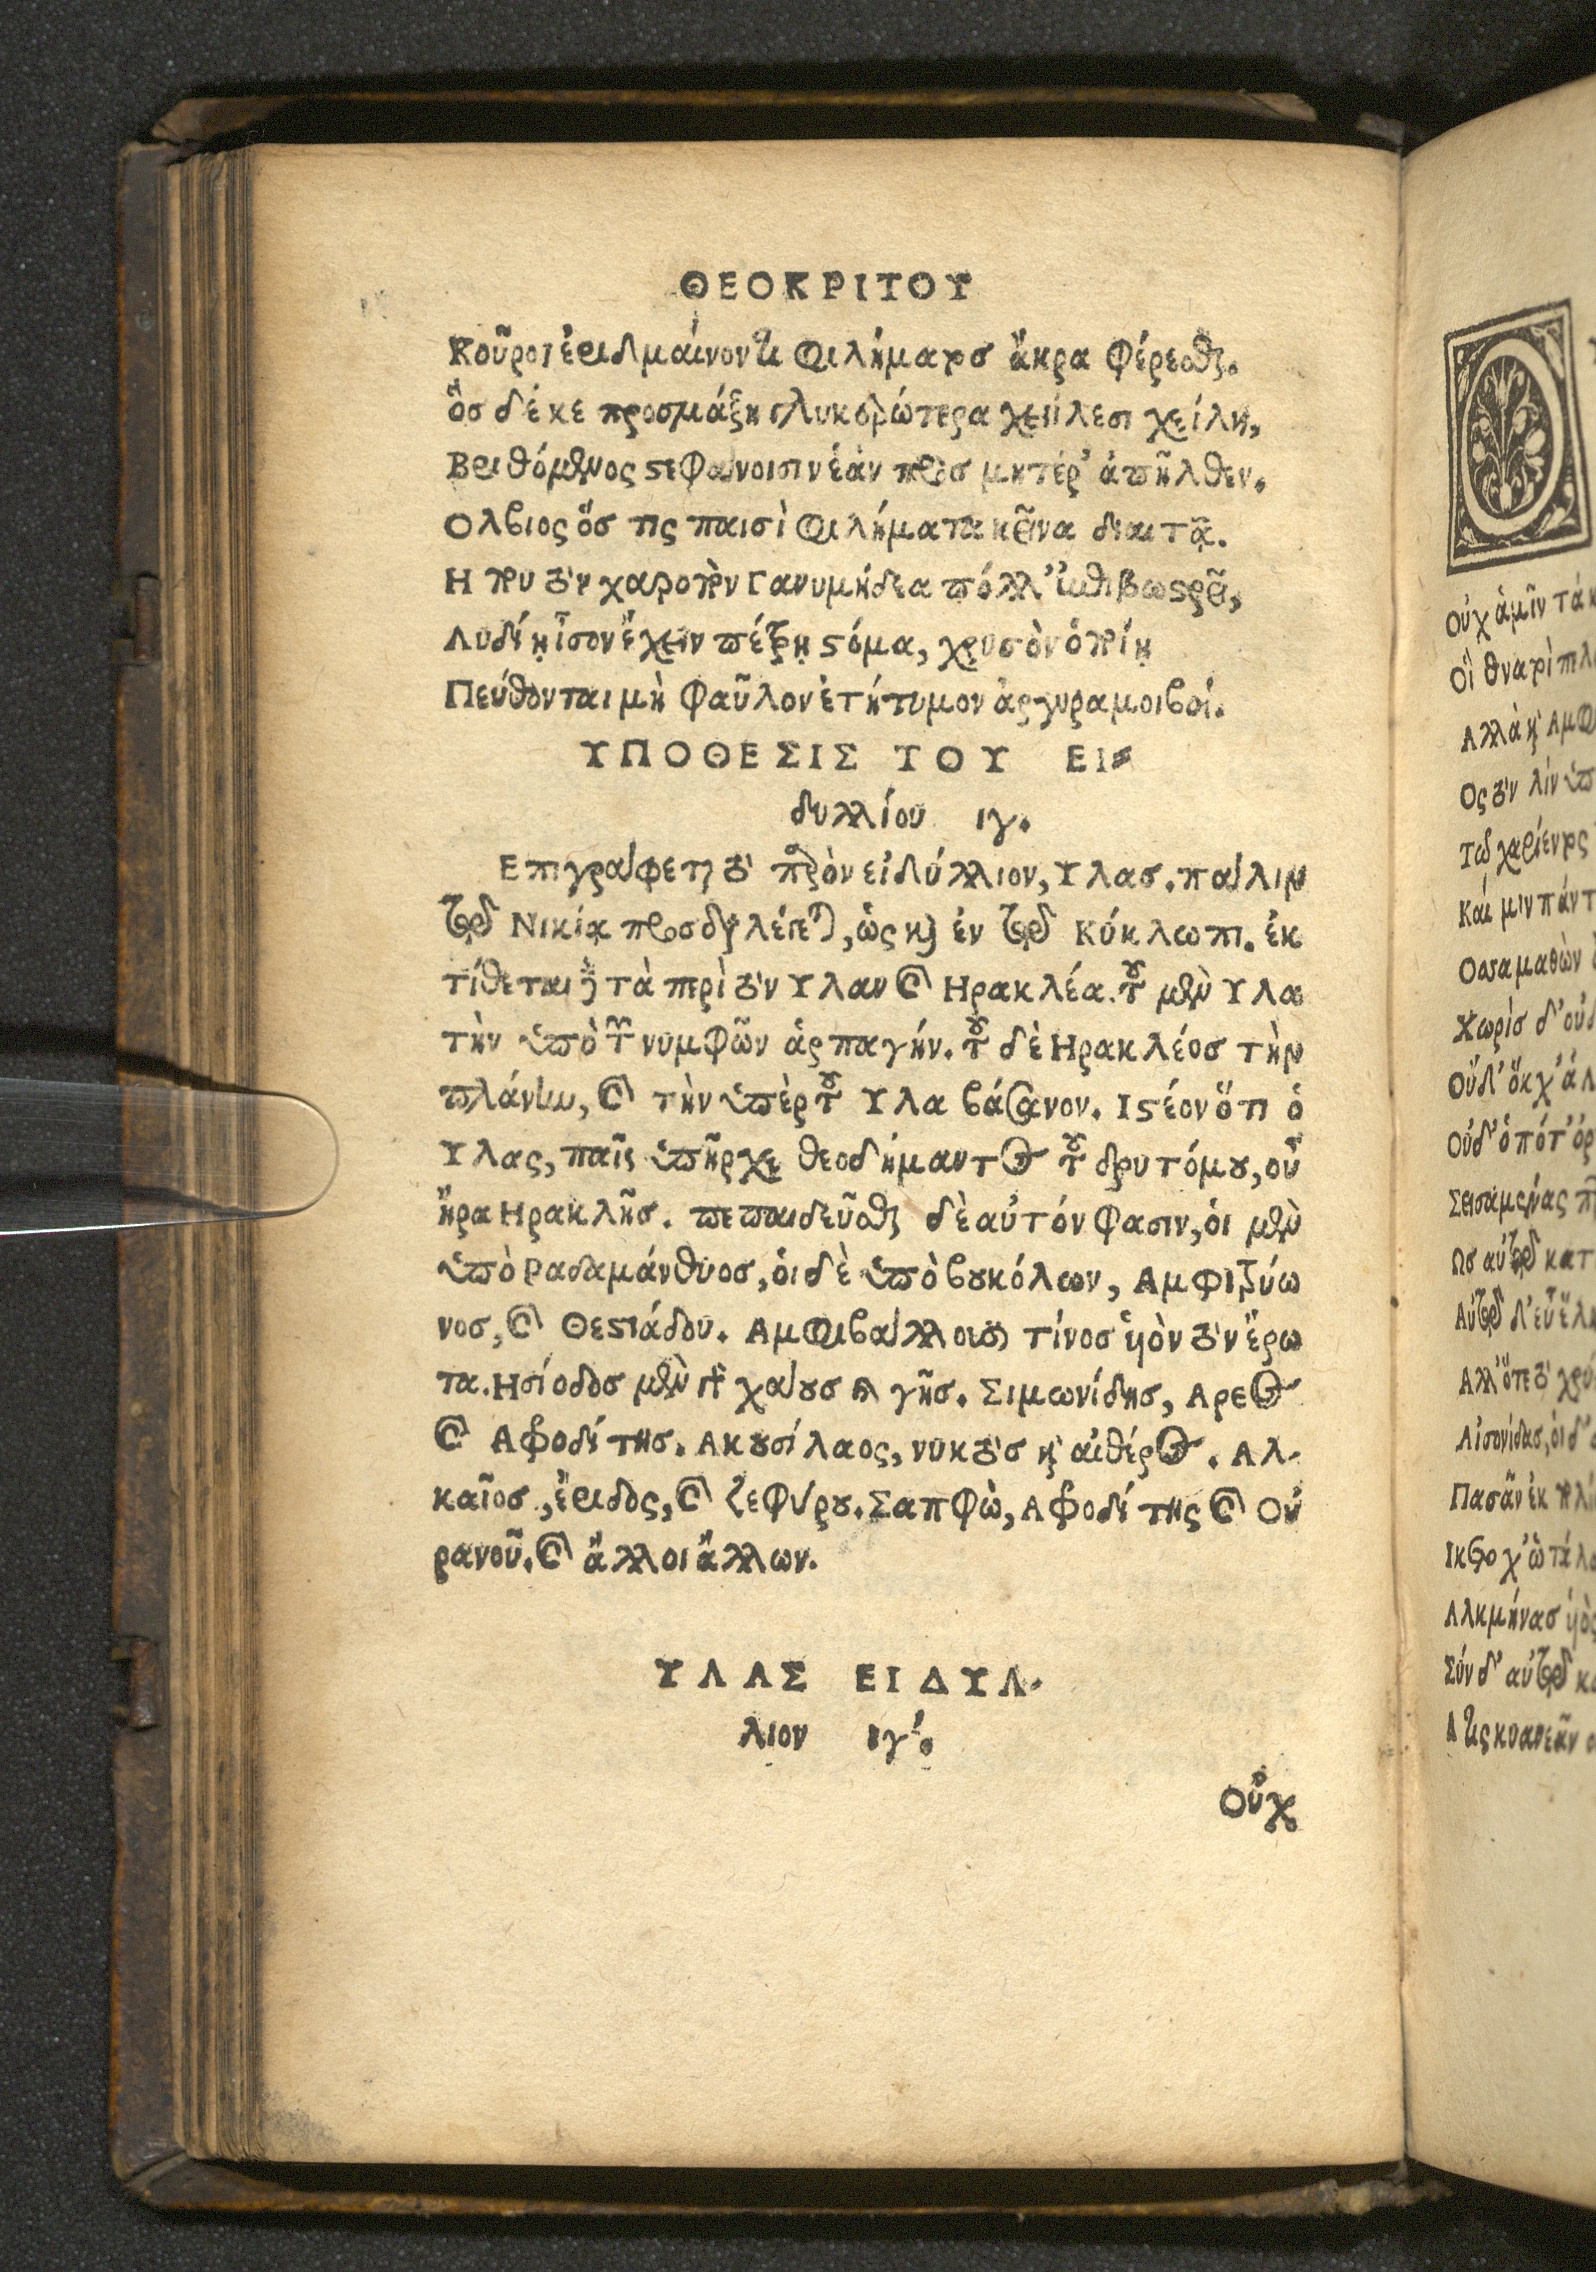 ΘΕΟΚΡΙΤΟΥ
Κοῦροι ἐριδμαίνοντι φιλήματος ἄκρα φέρεσθαι.
ὅσ δέ κε προσμάξη γλυκερώτερα χείλεσι χείλη,
Βριθόμενος στεφάνοισιν ἑὰν πρὸσ μητέρ' ἀπῆλθεν.
Ολβιος ὅσ τις παισὶ φιλήματα κεῖνα διαιτᾷ.
Η που τὸν χαροπὸν Γανυμήδεα πόλλ' ἐπιβωστρεῖ,
Λυδίῃ ἶσον ἔχειν πέτρῃ στόμα, χρυσὸν ὁποίῃ
Πεύθονται μὴ φαῦλον ἐτήτυμον ἀργυραμοιβοί.
ΥΠΟΘΕΣΙΣ ΤΟΥ ΕΙ-
δυλλίου ιγ.
Επιγράφεται τὸ παρὸν εἰδύλλιον, Υλασ. πάλιν
τῷ Νικίᾳ προσδιαλέγεται, ὡς καὶ ἐν τῷ Κύκλωπι. ἐκ
τίθεται δὲ τὰ περὶ τὸν Υλαν καὶ Ηρακλέα. τοῦ μὲν Υλα
τὴν ὑπὸ τῶν νυμφῶν ἁρπαγήν. τοῦ δὲ Ηρακλέοσ τὴν
πλάνην, καὶ τὴν ὑπὲρ τοῦ Υλα βάσανον. Ιστέον ὅτι ὁ
Υλας, παῖς ὑπῆρχε θεοδήμαντος τοῦ δρυτόμου, οὗ
ἤρα Ηρακλῆσ. πεπαιδεῦσθαι δὲ αὐτόν φασιν, ὁι μὲν
ὑπὸ Ραδαμάνθυοσ, ὁι δὲ ὑπὸ βουκόλων, Αμφιτρύω
νοσ, καὶ Θεστιάδου. Αμφιβάλλουσι τίνοσ ὑιὸν τὸν ἔρω
τα. Ησίοδοσ μὲν χάουσ καὶ γῆσ. Σιμωνίδησ, Αρεος
καὶ Αφροδίτησ. Ακουσίλαος, νυκτὸσ καὶ αἰθέρος. Αλ-
καῖοσ, ἔριδος, καὶ ζεφύρου. Σαπφὼ, Αφροδίτης καὶ Οὐ
ρανοῦ. καὶ ἄλλοι ἄλλων.
ΥΛΑΣ ΕΙΔΥΛ-
λιον ιγ'.
Οὔχ
Οὐχ ἁμῖν
Οἳ θνατοὶ
Αλλὰ καὶ
Ος τὸν λῖν
Τῶ χαρίεντος
Καί μιν πάντ
Οσσα μαθὼν
Χωρὶσ δ' οὐ
Οὔδ' ὅκχ'
Οὐδ' ὁπότ'
Σεισαμένας
Ωσ αὐτῷ κατ
Αὐτῷ δ' εὖ
Αλλ' ὅτε τὸ
Αἰσονίδασ, ὁι δ'
Πασᾶν ἐκ
Ικετο χ' ὠ
Αλκμήνασ ὑιὸς
Σύν δ' αὐτῷ
Α τις κυανεᾶν